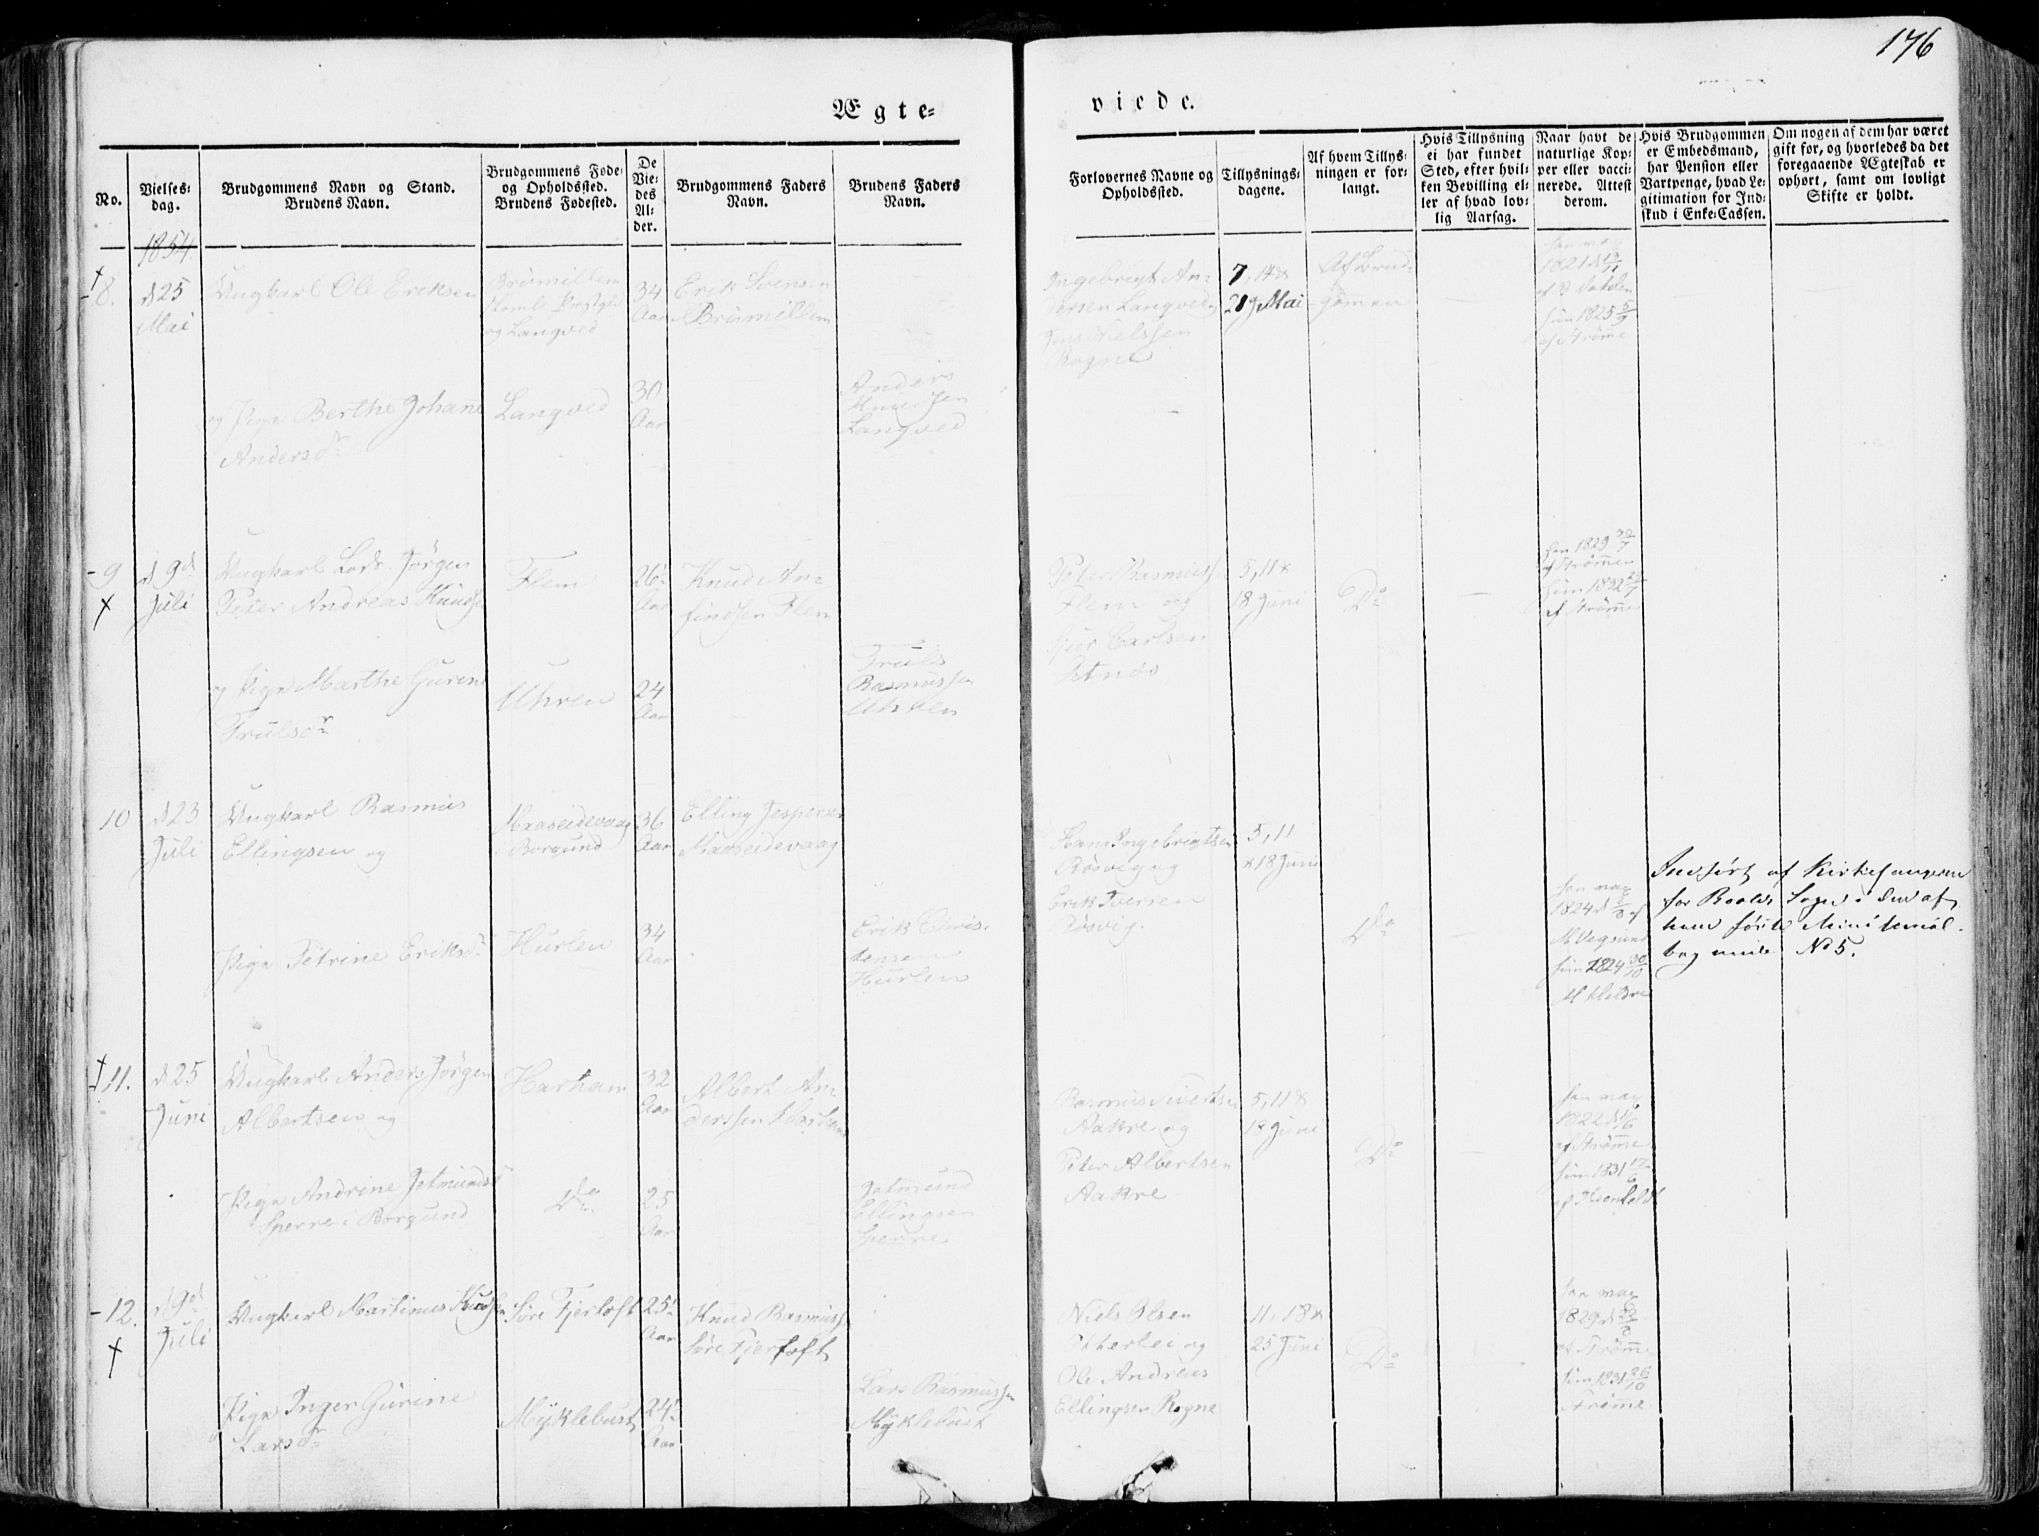 176
Ægte=
viede.
No.
Vielses=
dag.
Brudgommens Navn og Stand.
Brudens Navn.
Brudgommens Føde=
og Opholdssted.
Brudens Fødested.
De
Vie=
des
Al=
der.
Brudgommens Faders
Navn.
Brudens Faders
Navn.
Forlovernes Navne og
Opholdssted.
Tillysnings=
dagene.
Af hvem Tillys=
ningen er for=
langt.
Hvis Tillysning
ei har fundet
Sted, efter hvil=
ken Bevilling el=
ler af hvad lov=
lig Aarsag.
Naar havt de
naturlige Kop=
per eller vacci=
nerede. Attest
derom.
Hvis Brudgommen
er Embedsmand,
har Pension eller
Vartpenge, hvad Le=
gitimation for Ind=
skud i Enke=Cassen.
Om nogen af dem har været
gift før, og hvorledes da det
foregaaende Ægteskab er
ophørt, samt om lovligt
Skifte er holdt.
1854
8.
d 25
Mai
Ungkarl Ole Eriksen
Brømillem
og Langved
34
Aar
Erik Svensen
Brømillem
Ingebrigt An=
dersen Langved
Jens Nielssen
Rogne
7, 14 &
21 Mai
Af Brud=
gommen
1821
1825 5/9
af Strømme
og Pige Berthe Johanne
Andersdr
Langved
30
Aar
Anders
Knudsen
Langved
9
d 9d
Juli
Ungkarl Lods Jørgen
Peter Andreas Knuds
Flem
26
Aar
Knud An=
findsen Flem
Peter Rasmuss
Flem og
Carlsen
5, 11 &
18 Juni
Do
han 1829 30/7
af Strømme
hun 1832
af Strømme
og Pige Marthe Gurine
Trulsdr
Uhren
24
Aar
Truls
Rasmussen
Uhren
10
d 23
Juli
Ungkarl Rasmus
Ellingsen og
Maaseidevaag
i Borgund
36
Aar
Elling Jespersen
Maaseidevaag
Hans Ingebrigtsen
Røsvig og
Erik Iversen
Røsvig.
5, 11
& 18 Juni
Do
1824
Vegsund
hun 1824 30/10
Pige Petrine Eriksdr
Hurlen
34
Aar
Erik Chris=
tensen
Hurlen
Indført af Kirkesangeren
for Roalds Sogn i den af
ham førte Ministerial=
bog under No 5.
11.
d 25
Juni
Ungkarl Anders Jørgen
Albertsen og
Harham
32
Aar
Albert An=
derssen Harham
Rasmus Sivertsen
Aakre og
Peter Albertsen
Aakre
5, 11 &
18 Juni
Do
1822
af Strømme
hun 1831 17/6
Pige Andrine Jetmundsd
Sperre i Borgund
Do
25
Aar
Jetmund
Ellingsen
Sperre
12.
d 9d
Juli
Ungkarl Martinus Knudsen
Søre Fjertoft
25
Aar
Knud Rasmuss
Søre Fjertoft
Niels Olsen
Otterlei og
Ole Andreas
Ellingsen Rogne
11, 18 &
25 Juni
Do
1829
af Strømme
hun 1831 26/10
Strømme
Pige Inger Gurine
Larsdr
Myklebust
24
Aar
Lars Rasmussen
Myklebust